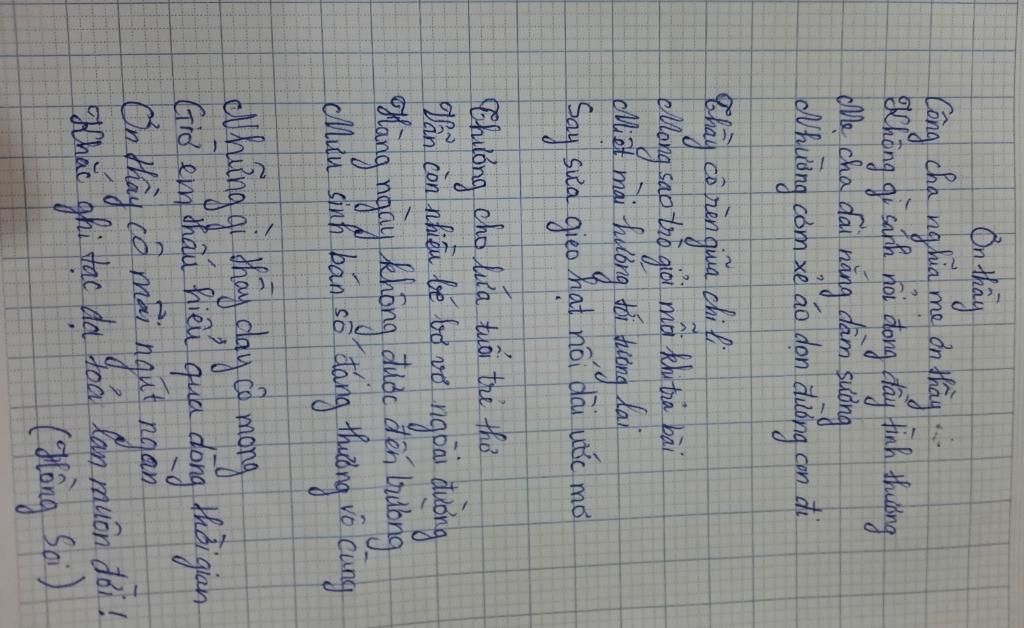 Ơn thầy
Công cha nghĩa mẹ ơn thầy
Không gì sánh nổi đong đầy tình thương
Mẹ cha dãi nắng dầm sương
Nhường cơm xẻ áo dọn đường con đi
Thầy cô rèn giũa chi li
Mong sao trò giỏi mỗi khi trả bài
Miệt mài hướng tới tương lai
Say sưa gieo hạt nối dài ước mơ
Thương cho lứa tuổi trẻ thơ
Vẫn còn nhiều bé bơ vơ ngoài đường
Hàng ngày không được đến trường
Mưu sinh bán số đáng thương vô cùng
Những gì thầy dạy cô mong
Giờ em thấu hiểu qua dòng thời gian
Ơn thầy cô mãi ngút ngàn
Khắc ghi tạc dạ toả lan muôn đời!
(Hồng Soi)